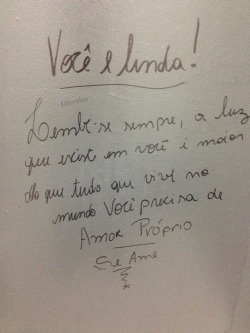 Você é linda!
Lembre-se sempre, a luz
que existe em você é maior
do que tudo que vive no
mundo. Você precisa de
Amor Próprio
Se Ame